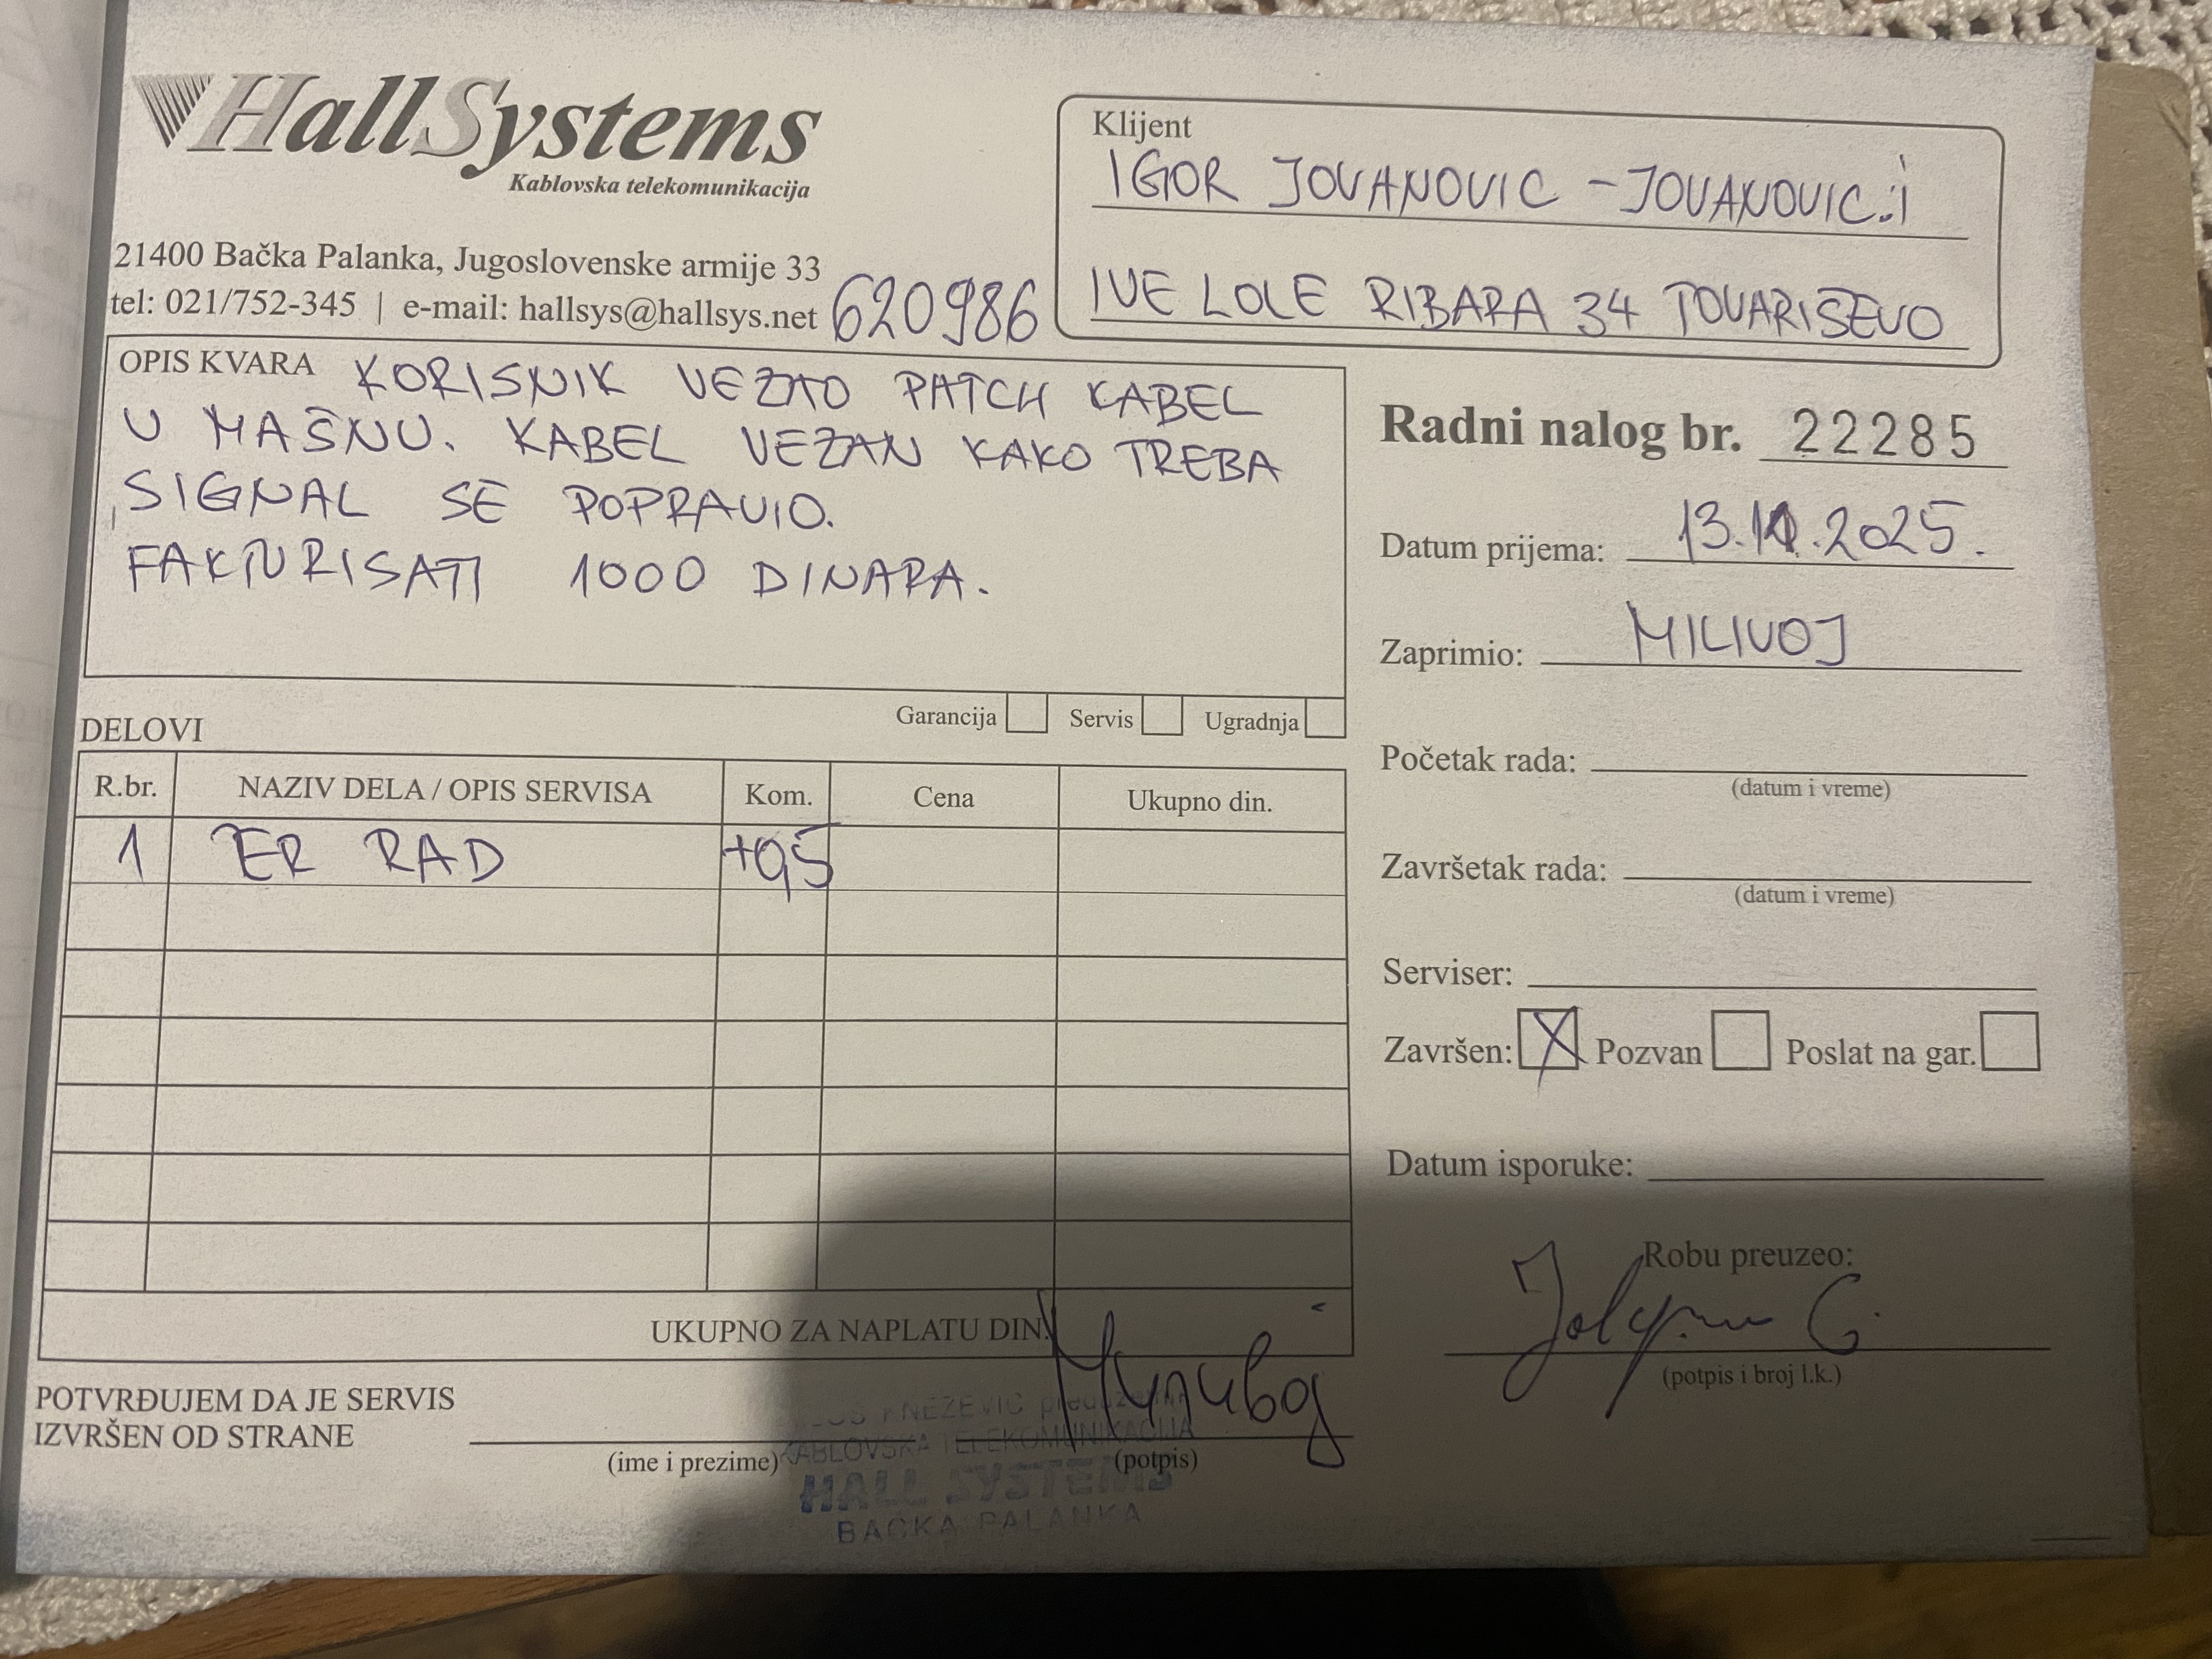 HallSystems
Kablovska telekomunikacija
21400 Bačka Palanka, Jugoslovenske armije 33
tel: 021/752-345 | e-mail: hallsys@hallsys.net
620986
Klijent
IGOR JOVANOVIC - JOVANOVIC.i
IVE LOLE RIBARA 34 TOVARIŠEVO
OPIS KVARA KORISNIK VEZAO PATCH KABEL
U MAŠNU. KABEL VEZAN KAKO TREBA
SIGNAL SE POPRAVIO.
FAKTURISATI 1000 DINARA.
Garancija Servis Ugradnja
Radni nalog br. 22285
Datum prijema: 13. .2025.
Zaprimio: MILIVOJ
Početak rada:
(datum i vreme)
Završetak rada:
(datum i vreme)
Serviser:
Završen: X Pozvan Poslat na gar.
Datum isporuke:
Robu preuzeo:
(potpis i broj l.k.)
DELOVI
R.br. NAZIV DELA / OPIS SERVISA Kom. Cena Ukupno din.
1 ER RAD +0,5
UKUPNO ZA NAPLATU DIN.
POTVRĐUJEM DA JE SERVIS
IZVRŠEN OD STRANE
(ime i prezime) (potpis)
KNEZEVIC
KABLOVSKA TELEKOMUNIKACIJA
HALL SYSTEMS
BACKA PALANKA